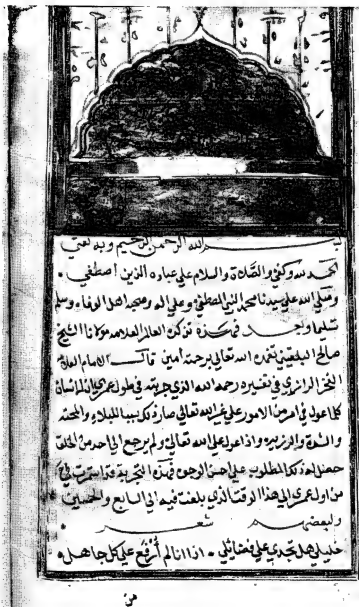 بسم الله الرحمن الرحيم وبه ثقتي
الحمد لله وكفى والصلاة والسلام على عباده الذين اصطفى .
وصلى الله على سيدنا محمد النبي المصطفى وعلى اله وصحبه اهل الوفاء وسلم
تسليما وبعد فهذه تذكرة العالم العلامه مولانا الشيخ
صالح البلقيني تغمده الله تعالى برحمته امين قال الامام العلامه
الفخر الرازي في تفسيره رحمه الله الذي جربته في طول عمري ان الانسان
كلما عول في امر من الامور على غير الله تعالى صار ذلك سببا للبلاء والمحنه
والشدة والرزيه واذا عول على الله تعالى ولم يرجع الى احد من الخلق
حصل له ذلك المطلوب على احسن الوجوه فهذه التجربة قد استمرت لي
من اول عمري الى هذا الوقت الذي بلغت فيه الى السابع والخمسين
ولبعضهم شعر
خليلي هل تجدي علي فضائلي . اذا انا لم أرفع على كل جاهل .
من